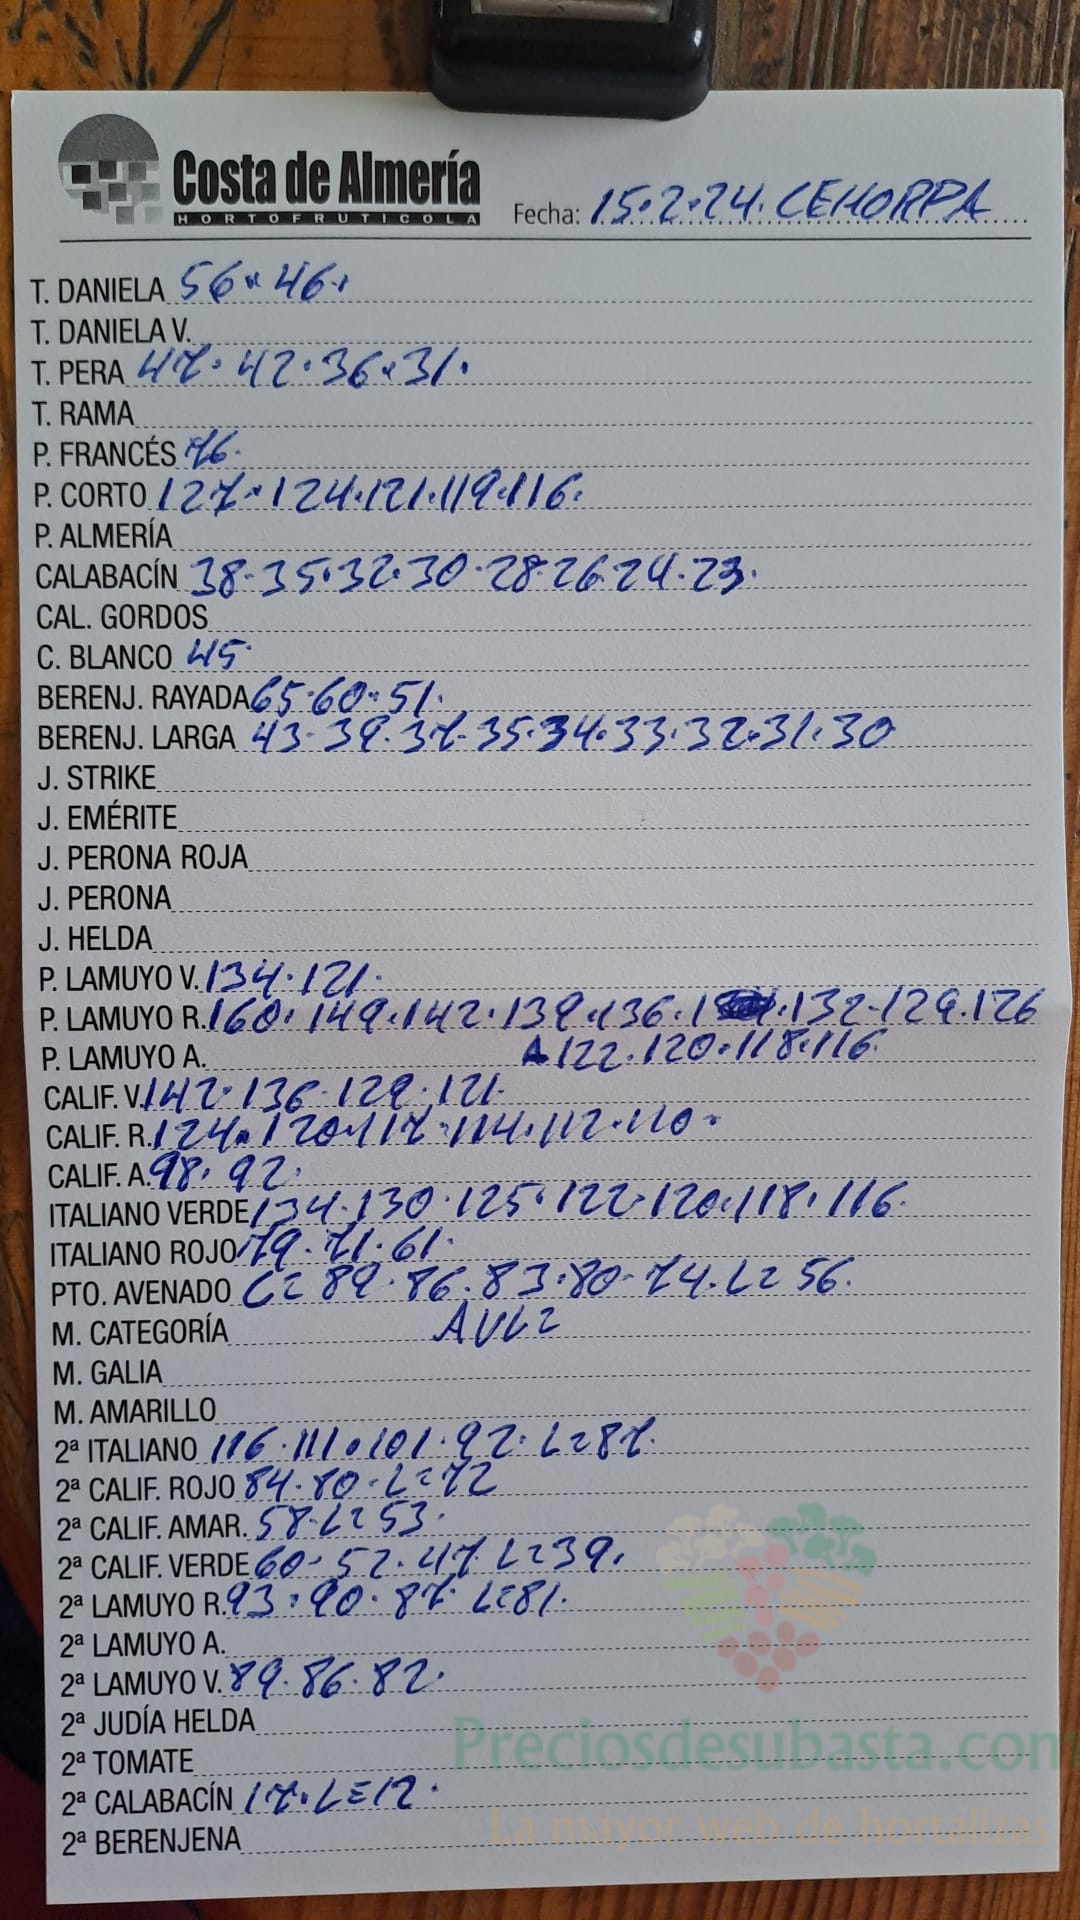 Costa de Almería
HORTOFRUTICOLA
Fecha: 15.2.24. CEHORPA
T. DANIELA 56.46.
T. DANIELA V.
T. PERA 47.42.36.31.
T. RAMA
P. FRANCÉS 76.
P. CORTO 127.124.121.119.116.
P. ALMERÍA
CALABACÍN 38.35.32.30.28.26.24.23.
CAL. GORDOS
C. BLANCO 45
BERENJ. RAYADA 65.60.51.
BERENJ. LARGA 43.39.37.35.34.33.32.31.30
J. STRIKE
J. EMÉRITE
J. PERONA ROJA
J. PERONA
J. HELDA
P. LAMUYO V. 134.121.
P. LAMUYO R. 160.149.142.139.136.132.129.126
P. LAMUYO A. 122.120.118.116.
CALIF. V. 142.136.129.121.
CALIF. R. 124.120.117.114.112.110.
CALIF. A. 98.92.
ITALIANO VERDE 134.130.125.122.120.118.116.
ITALIANO ROJO 79.71.61.
PTO. AVENADO 89.86.83.80.74.L=56.
M. CATEGORÍA
M. GALIA
M. AMARILLO
2ª ITALIANO 116.111.101.92.L=87.
2ª CALIF. ROJO 84.80.L=72
2ª CALIF. AMAR. 58.L=53.
2ª CALIF. VERDE 60.52.47.L=39.
2ª LAMUYO R. 93.90.87.L=81.
2ª LAMUYO A.
2ª LAMUYO V. 89.86.82.
2ª JUDÍA HELDA
2ª TOMATE
2ª CALABACÍN 17.L=12.
2ª BERENJENA
Preciosdesubasta.com
La mayor web de hortalizas